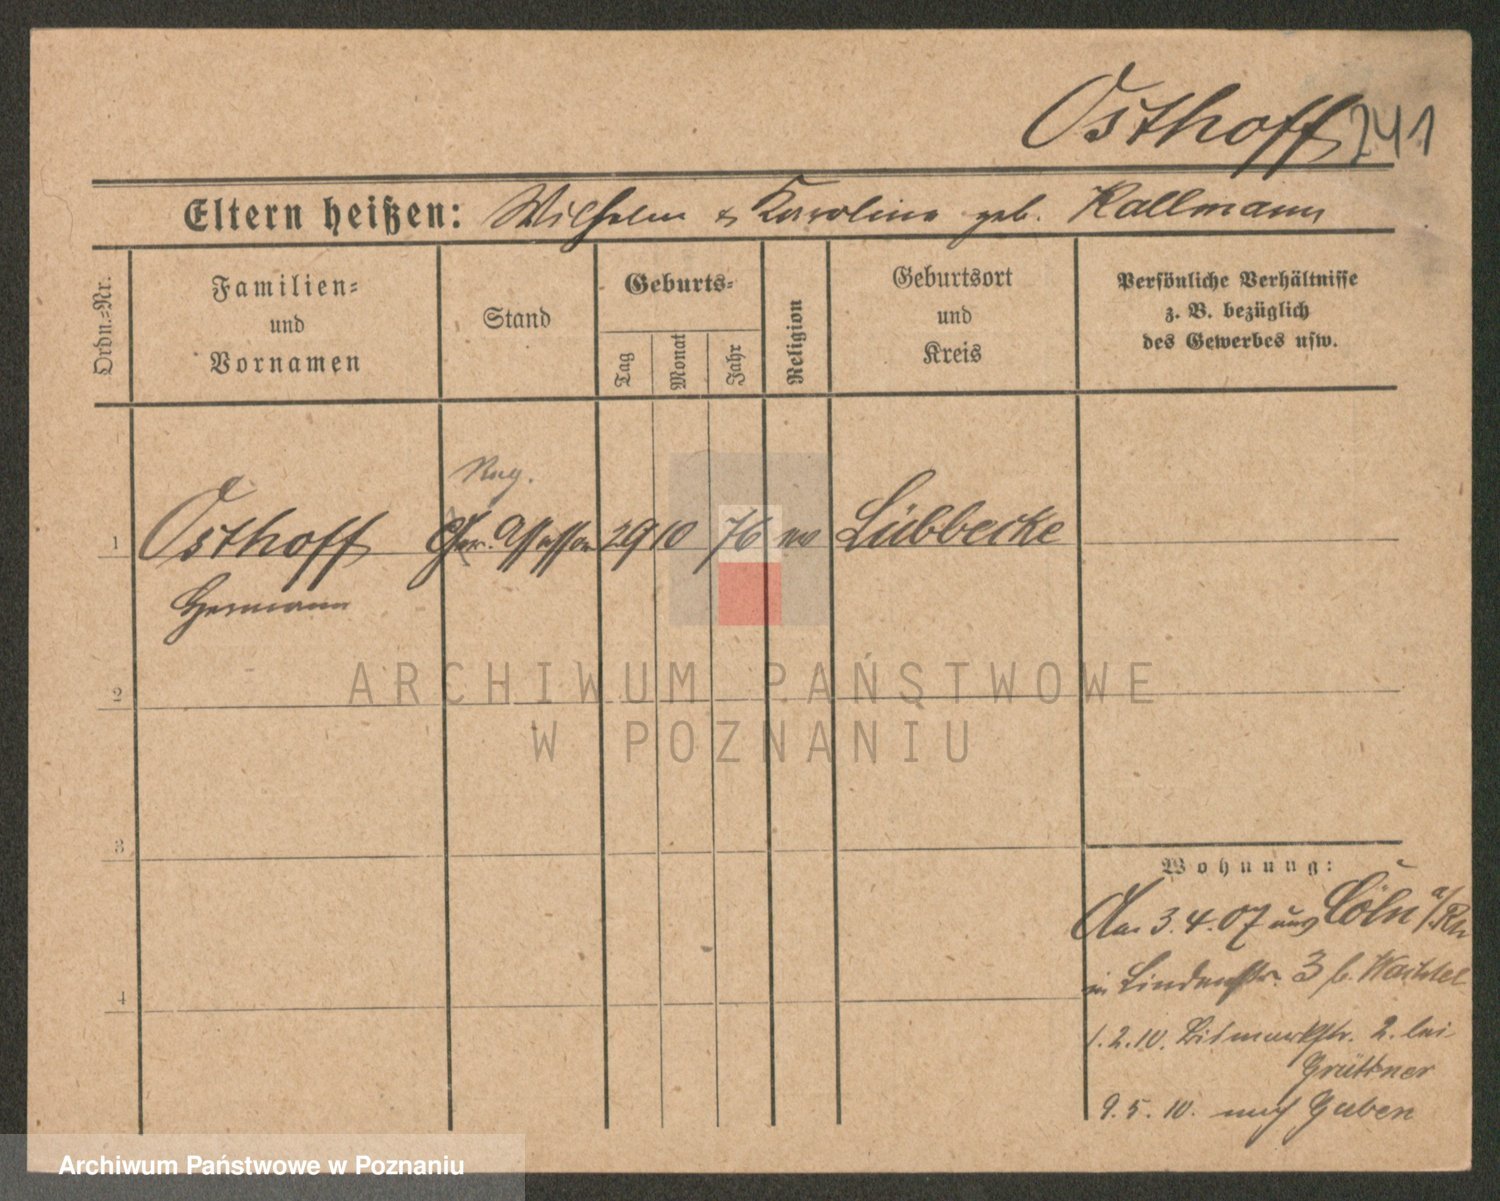 Osthoff 241
Eltern heißen: Wilhelm & Karoline geb. Kallmann
Ordn.-Nr.
Familien-
und
Vornamen
Stand
Geburts-
Tag
Monat
Jahr
Religion
Geburtsort
und
Kreis
Persönliche Verhältnisse
z. B. bezüglich
des Gewerbes usw.
Reg.
1 Osthoff Ger. Assessor 29 10 76 ev Lübbecke
Hermann
2
ARCHIWUM PAŃSTWOWE
W POZNANIU
3
4
Wohnung:
3.4.07 aus Cöln a/Rh
in Lindenstr. 3 b. Wachtel
1.2.10. Bismarckstr. 2. bei
Grüttner
9.5.10. nach Guben
Archiwum Państwowe w Poznaniu